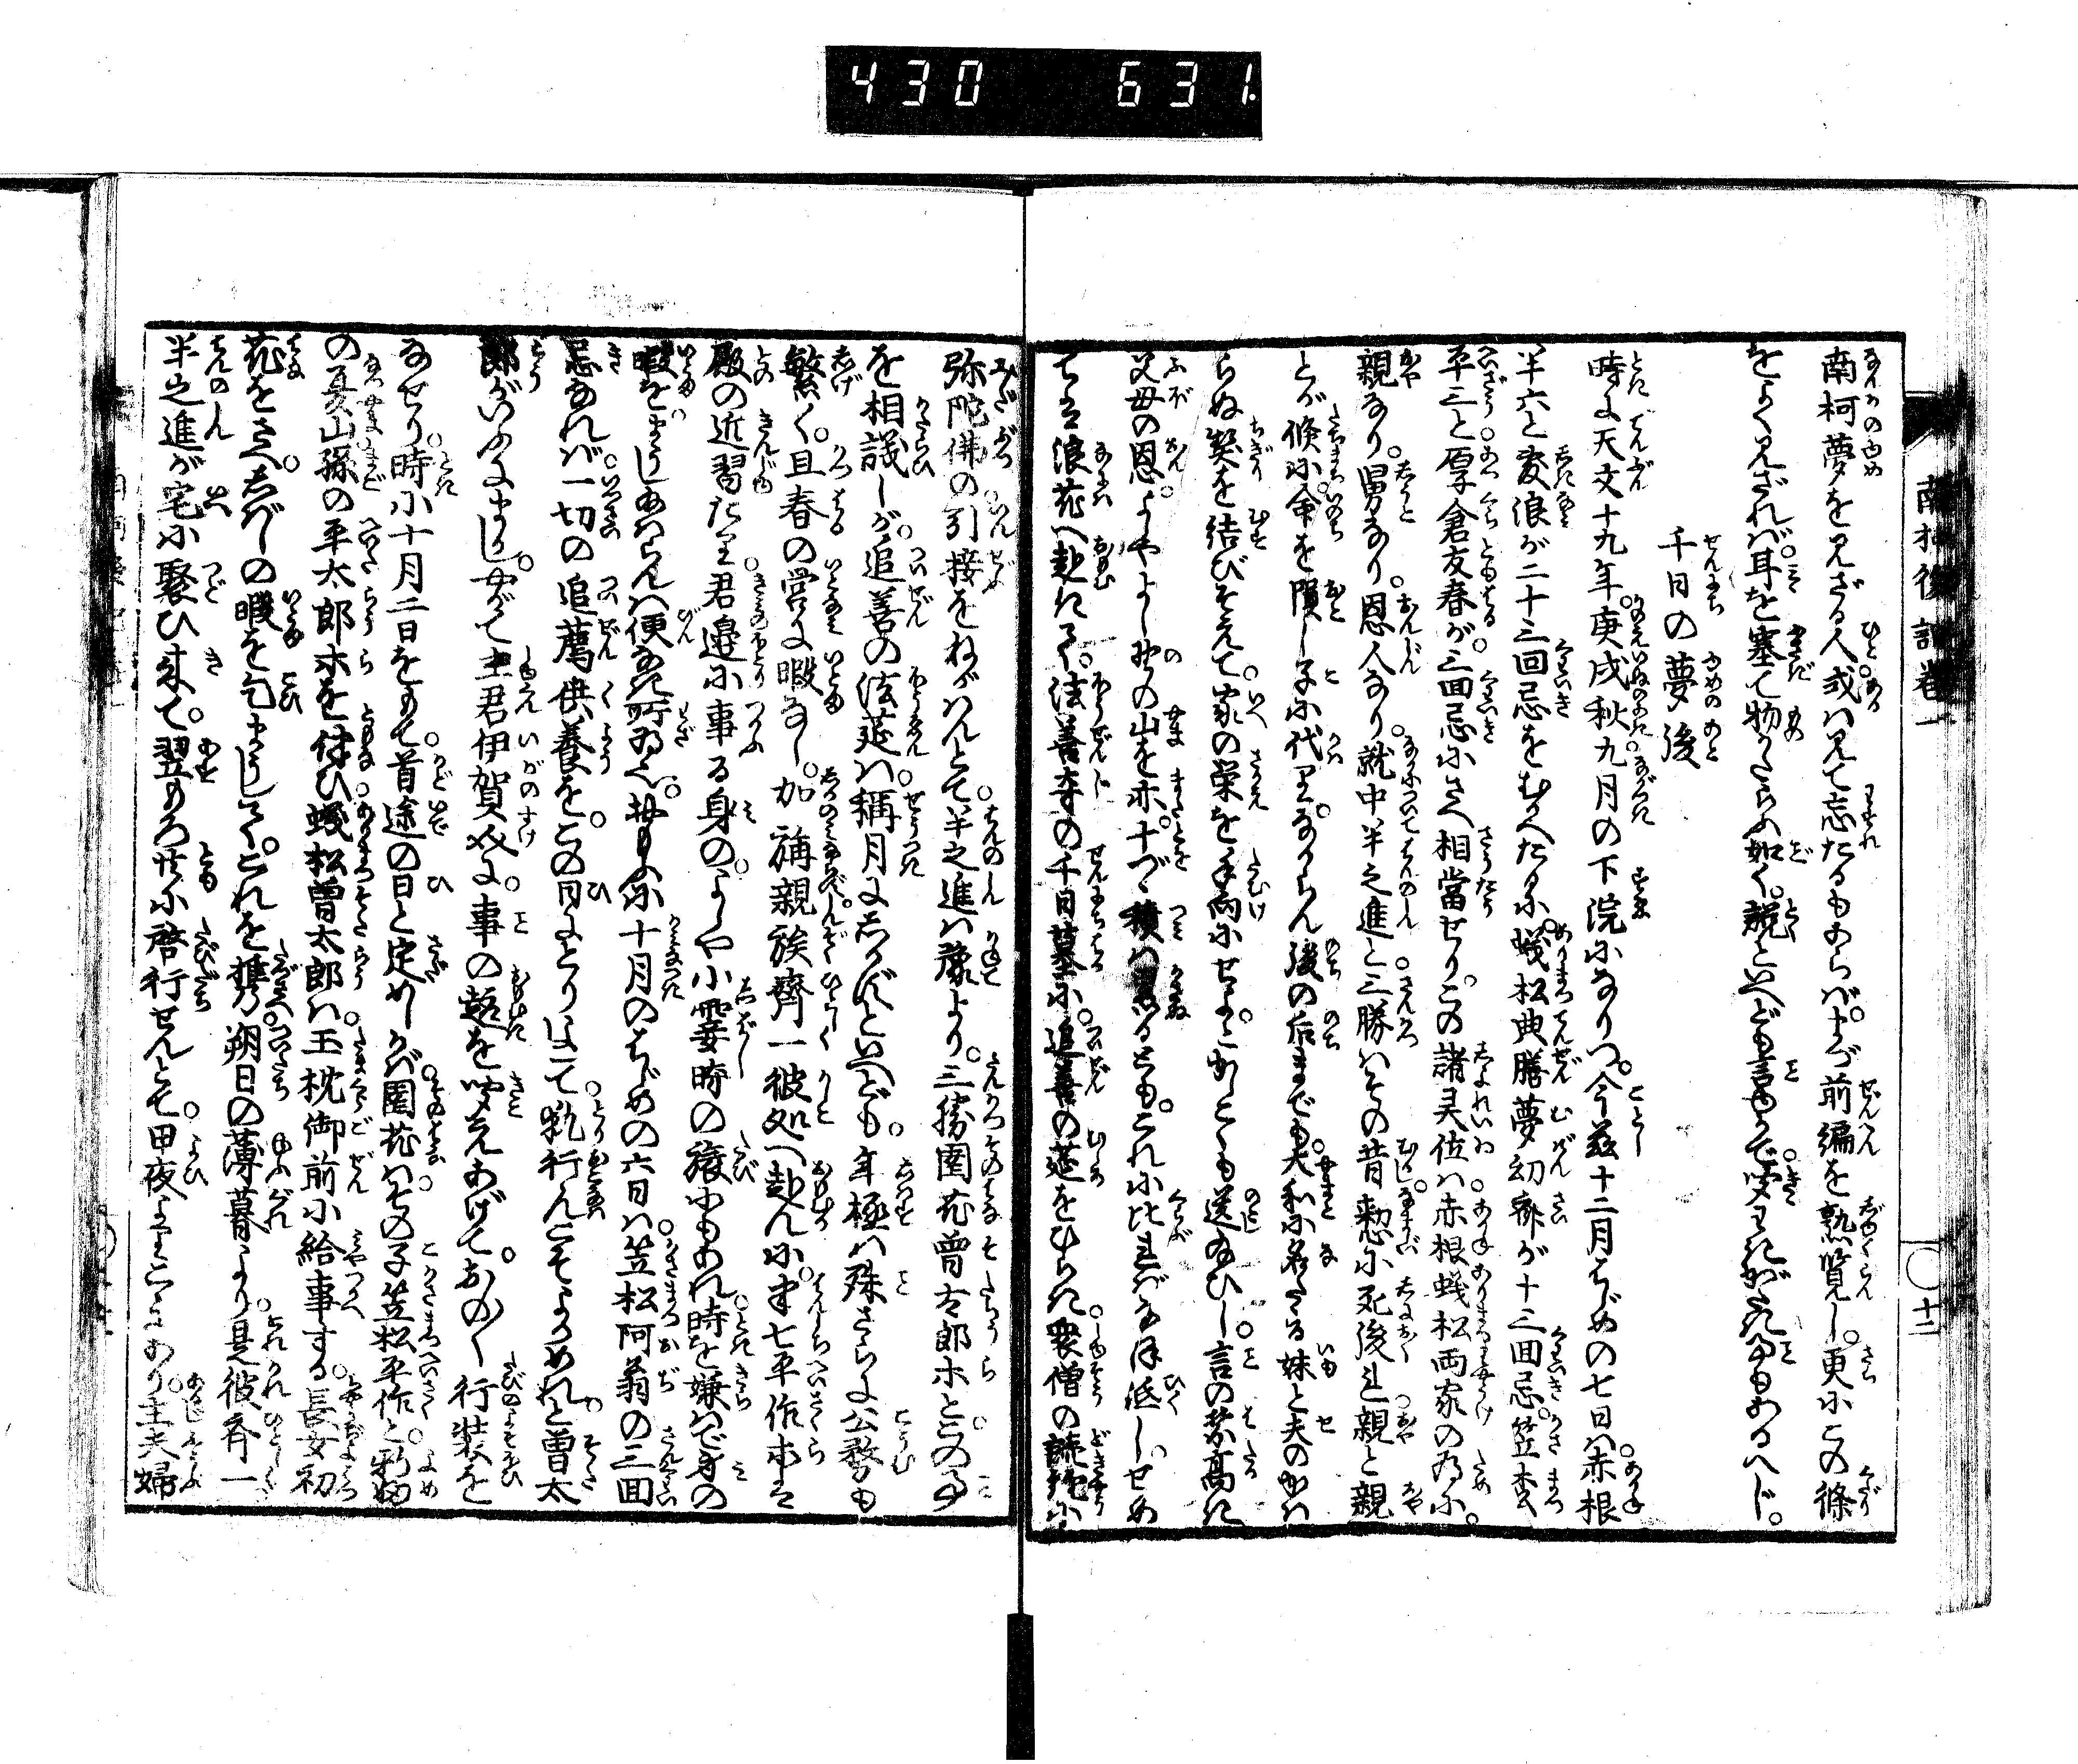 430 631
南柯後記巻一
〇十二
南柯夢を見ざる人或は見て忘たるもあらばまづ前編を熟覧し更にこの條
をよく見ざれば耳を塞て物かたらふ如く説といへども言もらで聞えがたき事もあるべし。
千日の夢後
時に天文十九年庚戌秋九月の下浣になりつ。今茲十二月はじめの七日は赤根
半六と敷浪が二十三回忌をむかへたるに。蟻松典膳夢幻齋が十三回忌。笠松
平三と厚倉友春が三回忌にさへ相當せり。この諸灵位は赤根蟻松両家の為に。
親あり。舅あり。恩人あり。就中半之進と三勝はその昔愆に死後れ親と親
とが倏に命を隕し子に代りなからん後の后までも。大和に名たる妹と夫のかは
らぬ契を結びそえて。家の栄を手向にせよとかくも送給ひし言の葉高き
父母の恩。よやよし野の山を赤十づゝ積は累るとも。これに比ればなほ低し。せめ
ては浪花へ赴きて。法善寺の千日墓に。追善の莚をひらき。衆僧の読経に
弥陀佛の引接をねがはんとて。半之進は豫より。三勝園花曽太郎ホとこの事
を相譏しが。追善の法莚は。稱月にしかずといへども。年極は殊さらに公務も
繁く。且春の営に暇なし。加旃親族齊一彼処へ赴んに。半七平作ホは
殿の近習たり。君邊に事る身の。よしや小霎時の旅にもあれ時を嫌はで身の
暇をまうしあはらんは便なき所為。幸に十月のはじめの六日は。笠松阿翁の三回
忌なれば。一切の追薦供養を。この月にとりこして執行んこそよかめれと。曽太
郎がいふにまかし。やがて主君伊賀介に。事の趣を聞えあげて。おの／＼行装を
なせり。時に十月二日をもて。首途の日と定めしかば。園花はその子笠松平作と新婦
の夏山孫の平太郎ホを倶ひ蟻松曽太郎は。玉枕御前に給事する長女初
花をさへ。しばしの暇を乞まうして。これを携。朔日の薄暮より。是彼齊一
半之進が宅に聚ひ來て。翌もろ共に啓行せんとて。甲夜よりこゝにあり。主夫婦